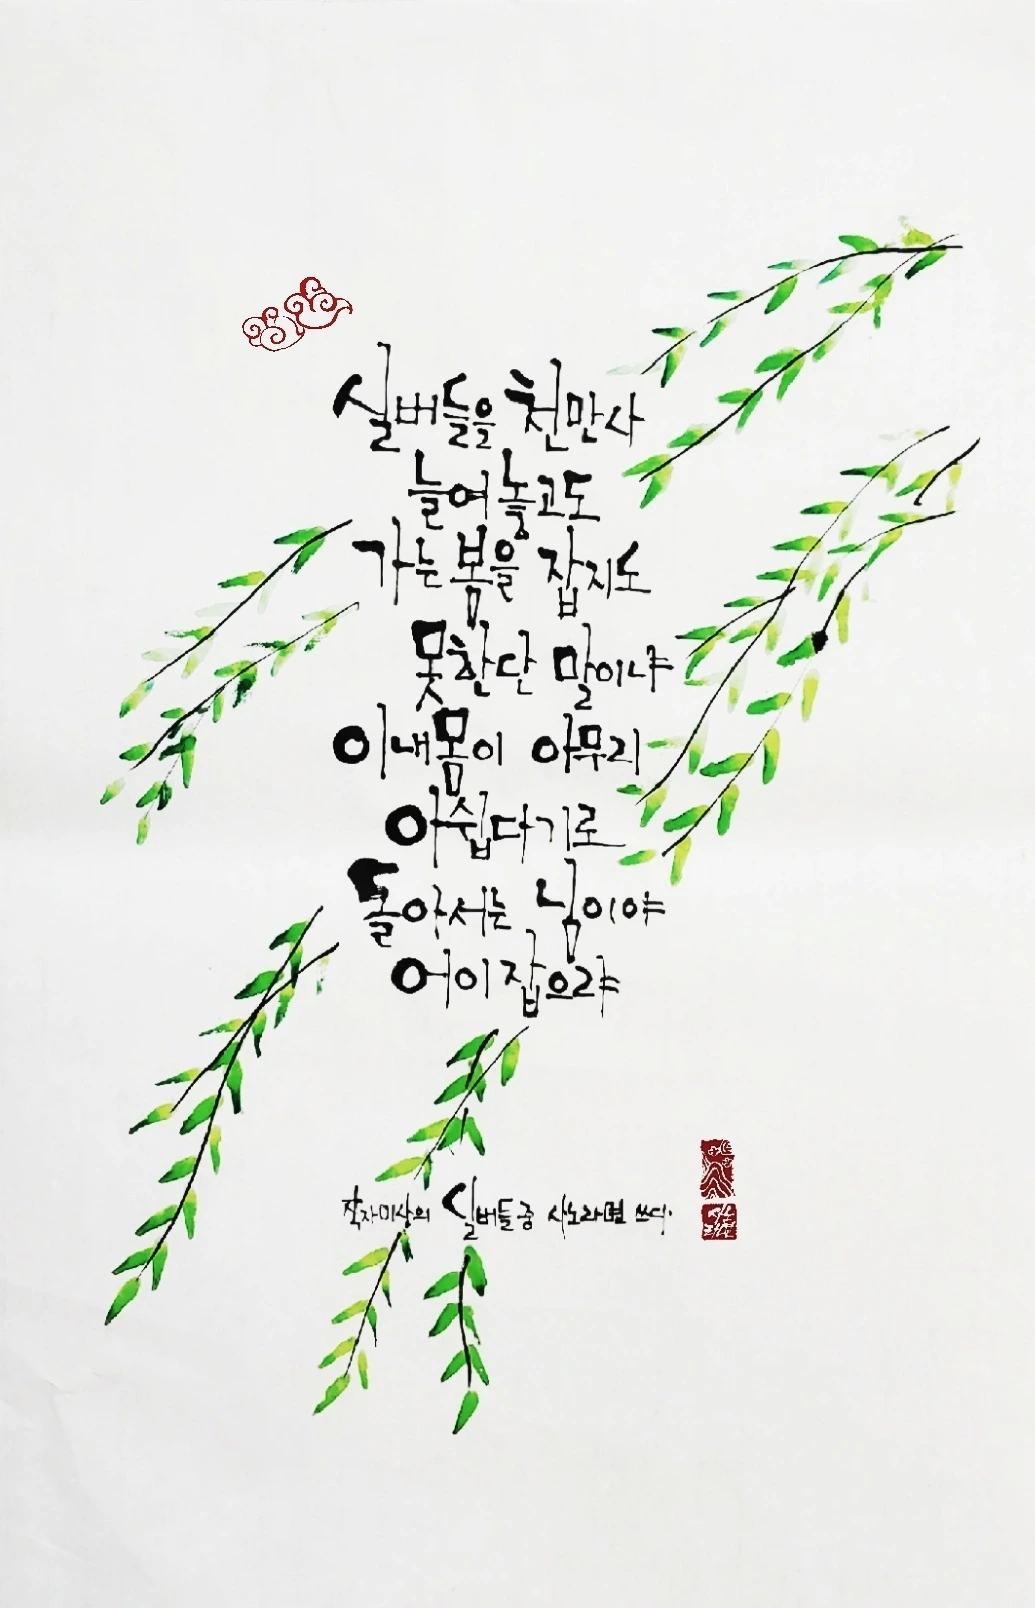 실버들을 천만사
늘어 놓고도
가는 봄을 잡지도
못한단 말이냐
이내몸이 아무리
아쉽다기로
돌아서는 님이야
어이 잡으랴
작자미상의 실버들 중 사노라면 쓰다.